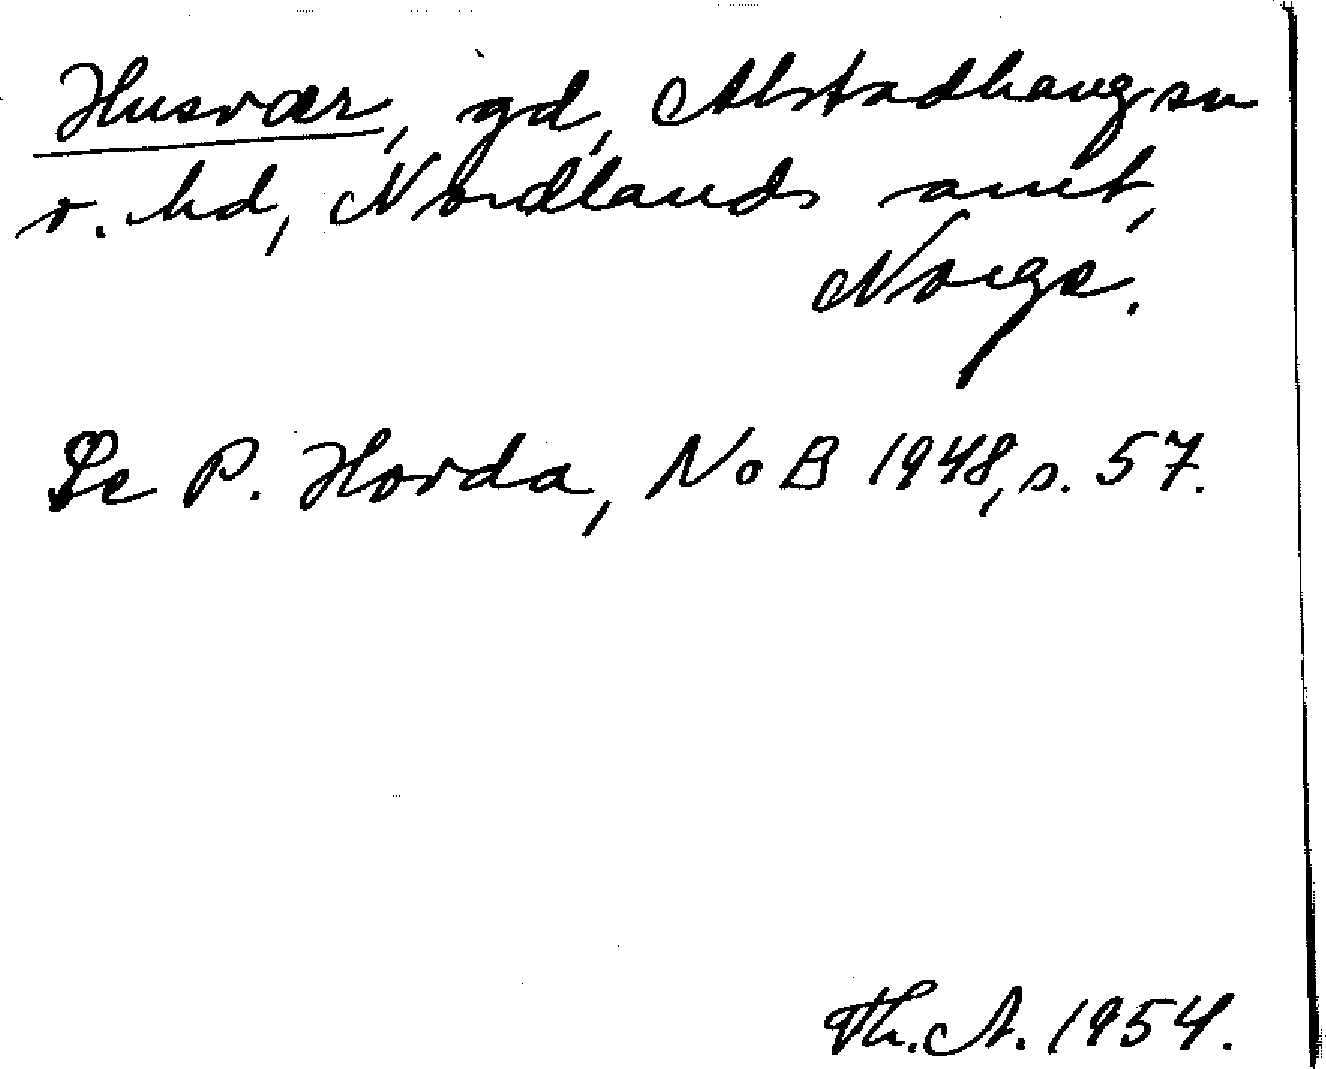 Husvær, gd, Alstadhaug sn
o. hd, Nordlands amt,
Norge.
Se P. Hovda, NoB 1948, s. 57.
Th. A. 1954.